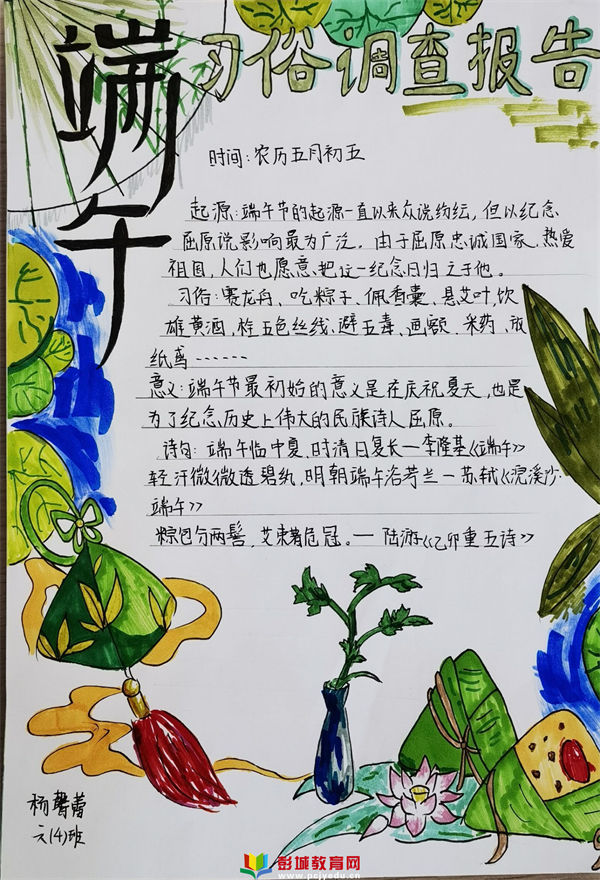 端午
习俗调查报告
时间：农历五月初五
起源：端午节的起源一直以来众说纷纭，但以纪念
屈原说影响最为广泛。由于屈原忠诚国家、热爱
祖国，人们也愿意把这一纪念日归之于他。
习俗：赛龙舟、吃粽子、佩香囊、悬艾叶、饮
雄黄酒、栓五色丝线、避五毒、画额、采药、放
纸鸢······
意义：端午节最初始的意义是在庆祝夏天，也是
为了纪念历史上伟大的民族诗人屈原。
诗句：端午临中夏，时清日复长—李隆基《端午》
轻汗微微透碧纨，明朝端午浴芳兰—苏轼《浣溪沙·
端午》
粽包分两髻，艾束著危冠。— 陆游《乙卯重五诗》
杨馨蕾
六(4)班
彭城教育网
www.pcjyedu.cn